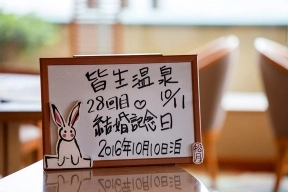 皆生温泉
28回目♡ 10/11
結婚記念日
2016年10月10日泊